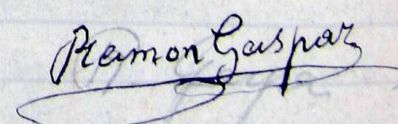 Ramon Gaspar